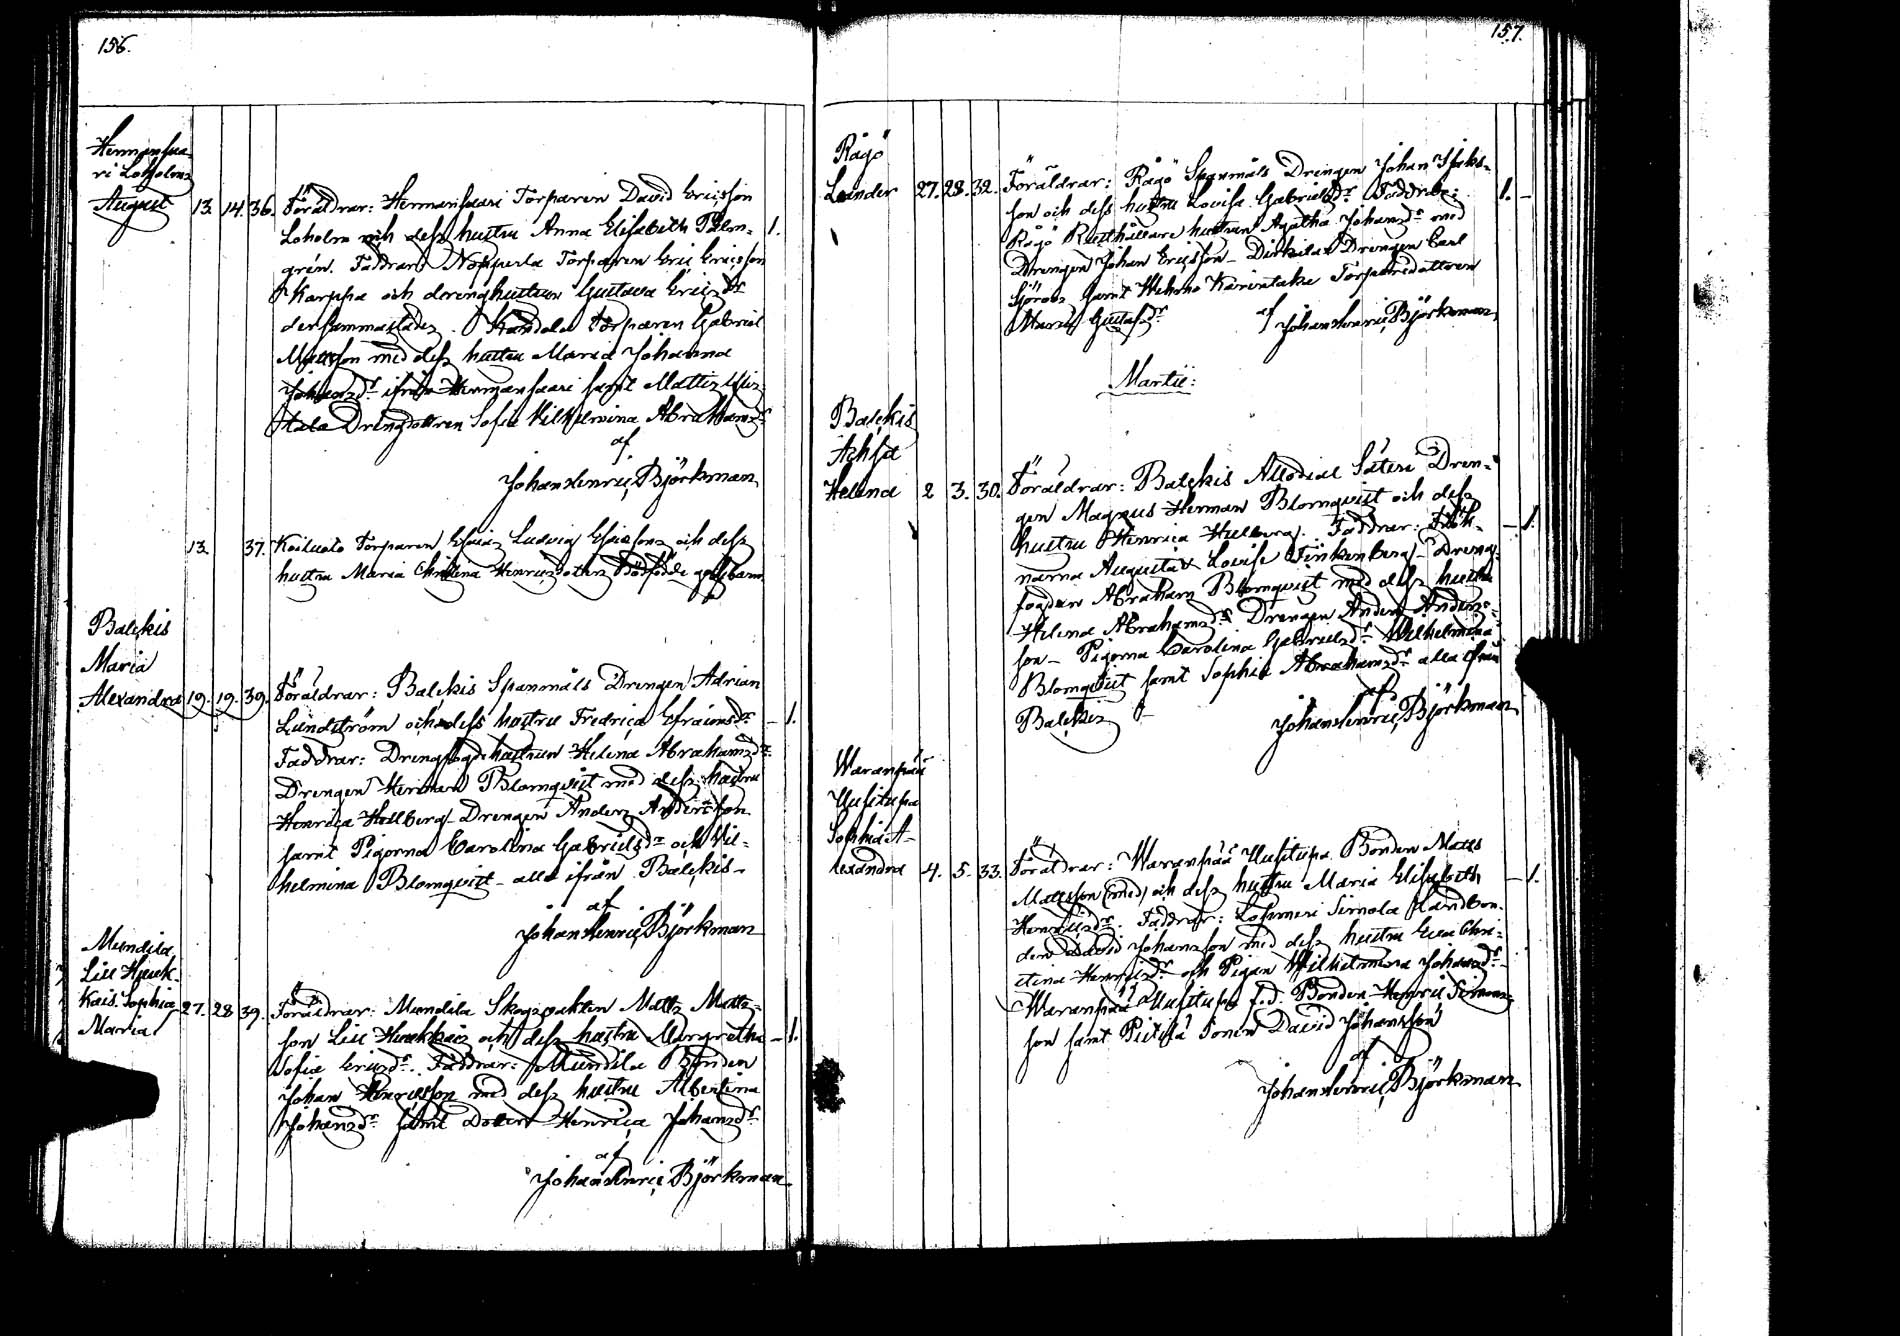 156.
Hermansaa-
ri Loholms
August 13. 14. 36. Föräldrar: Hermansaari Torparen David Ericsson
Loholm och dess hustru Anna Elisabeth Palm- 1.
grén. Faddrar: Nopperla Torparen Eric Ericsson
Karppa och drenghustrun Gustava Ericsdr
dersammastädes. Kandola Torparen Gabriel
Mattsson med dess hustru Maria Johanna
Johansdr ifrån Hermansaari samt Mattis
tala Drengdottren Sofia Vilhelmina Abrahamsdr
af
Johan Henric Björkman
13. 37. Koiluoto Torparen Esaias Ludvig Esaiasons och dess
hustru Maria Christina Henricsdoters Dödfödde gossebarn.
Balckis
Maria
Alexandra 19. 19. 39. Föräldrar: Balckis Spanmåls Drengen Adrian
Lundström och dess hustru Fredrica Efraimsdr – 1.
Faddrar: Drengfogdehustrun Helena Abrahamsdr
Drengen Herman Blomqvist med dess hustru
Henrica Hellberg – Drengen Anders Andersson
samt Pigorna Carolina Gabrielsdr och Vil-
helmina Blomqvist – alla ifrån Balckis –
af
Johan Henric Björkman
Mundila
Lill Hjuck
Kais. Sophia 27. 28 39. Föräldrar: Mundila Skogsvakten Matts Matts-
Maria
son Lill Huckkais och dess hustru Margretha – 1.
Sofia Ericsdr. Faddrar: Mundila Bonden
Johan Henricsson med dess hustru Albertina
Johansdr samt Dotter Henrica Johansdr
af
Johan Henric Björkman
157.
Rågö
Leander 27. 28. 32. Föräldrar: Rågö Spanmåls Drengen Johan Isaks- 1. –
son och dess hustru Lovisa Gabrielsdr Faddrar:
Rågö Rusthållare hustrun Agatha Johansdr med
Drengen Johan Ericsson – Dirkila Drengen Carl
Sjöroos samt Wehmo Kärintaka Torparedottren
Maria Gustafsdr af Johan Henric Björkman
Martii:
Balckis
Achsa
Helena 2 3. 30. Föräldrar: Balckis Allodial Säteri Dren-
gen Magnus Herman Blomqvist och dess
hustru Henrica Hellberg. Faddrar: Frök- – 1.
narna Augusta & Lovise Finkenberg – Dreng-
fogden Abraham Blomqvist med dess hustru
Helena Abrahamsdr Drengen Anders Anders-
son – Pigorna Carolina Gabrielsdr Wilhelmina
Blomqvist samt Sophia Abrahamsdr alla ifrån
Balckis – af
Johan Henric Björkman
Waranpää
Uusitupa
Sophia A-
lexandra 4. 5. 33. Föräldrar: Waranpää Uusitupa Bonden Matts
Mattsson (med) och dess hustru Maria Elisabeth – 1.
Henricsdr. Faddrar: Simola Landbon-
den David Johansson med dess hustru Eva Chri-
stina Henricsdr och Pigan Wilhelmina Johansdr –
Waranpää Uusitupa f.d. Bonden Henric Simons-
son samt Sonen David Johansson
af
Johan Henric Björkman